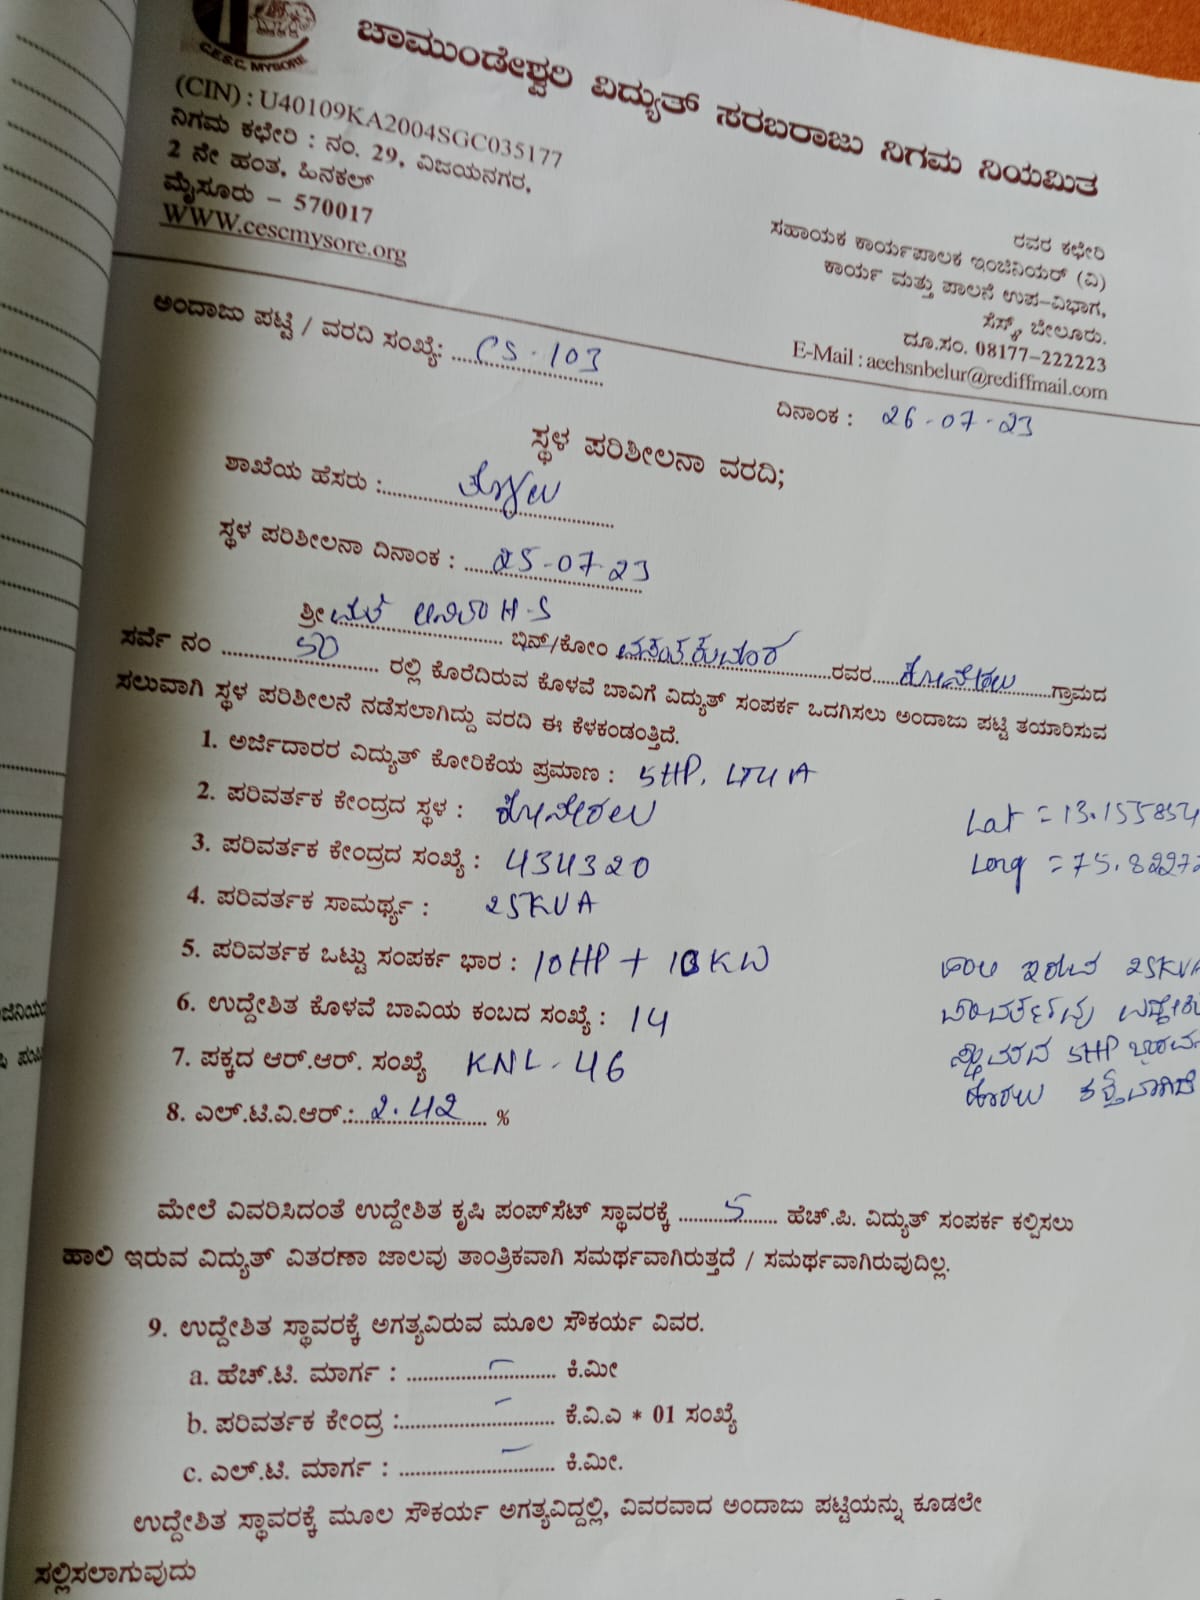 C.E.S.C. MYSORE
ಚಾಮುಂಡೇಶ್ವರಿ ವಿದ್ಯುತ್ ಸರಬರಾಜು ನಿಗಮ ನಿಯಮಿತ
(CIN) : U40109KA2004SGC035177
ನಿಗಮ ಕಛೇರಿ : ನಂ. 29, ವಿಜಯನಗರ,
2 ನೇ ಹಂತ, ಹಿನಕಲ್
ಮೈಸೂರು – 570017
WWW.cescmysore.org
ರವರ ಕಛೇರಿ
ಸಹಾಯಕ ಕಾರ್ಯಪಾಲಕ ಇಂಜಿನಿಯರ್ (ವಿ)
ಕಾರ್ಯ ಮತ್ತು ಪಾಲನೆ ಉಪ-ವಿಭಾಗ,
ಸೆಸ್ಕ್, ಬೇಲೂರು.
ದೂ.ಸಂ. 08177-222223
E-Mail : aeehsnbelur@rediffmail.com
ಅಂದಾಜು ಪಟ್ಟಿ / ವರದಿ ಸಂಖ್ಯೆ: CS-103
ದಿನಾಂಕ : 26-07-23
ಸ್ಥಳ ಪರಿಶೀಲನಾ ವರದಿ;
ಶಾಖೆಯ ಹೆಸರು :
ಸ್ಥಳ ಪರಿಶೀಲನಾ ದಿನಾಂಕ : 25-07-23
ಶ್ರೀಮತಿ H-S ಬಿನ್/ಕೋಂ ವಸಂತಕುಮಾರ ರವರ ಕೋನೇರಲು ಗ್ರಾಮದ
ಸರ್ವೆ ನಂ 50 ರಲ್ಲಿ ಕೊರೆದಿರುವ ಕೊಳವೆ ಬಾವಿಗೆ ವಿದ್ಯುತ್ ಸಂಪರ್ಕ ಒದಗಿಸಲು ಅಂದಾಜು ಪಟ್ಟಿ ತಯಾರಿಸುವ
ಸಲುವಾಗಿ ಸ್ಥಳ ಪರಿಶೀಲನೆ ನಡೆಸಲಾಗಿದ್ದು ವರದಿ ಈ ಕೆಳಕಂಡಂತ್ತಿದೆ.
1. ಅರ್ಜಿದಾರರ ವಿದ್ಯುತ್ ಕೋರಿಕೆಯ ಪ್ರಮಾಣ : 5HP, LT4A
2. ಪರಿವರ್ತಕ ಕೇಂದ್ರದ ಸ್ಥಳ : ಕೋನೇರಲು
Lat = 13.155854
3. ಪರಿವರ್ತಕ ಕೇಂದ್ರದ ಸಂಖ್ಯೆ : 434320
Long = 75.82272
4. ಪರಿವರ್ತಕ ಸಾಮರ್ಥ್ಯ : 25KVA
5. ಪರಿವರ್ತಕ ಒಟ್ಟು ಸಂಪರ್ಕ ಭಾರ : 10HP + 10KW
ಹಾಲಿ ಇರುವ 25KVA
6. ಉದ್ದೇಶಿತ ಕೊಳವೆ ಬಾವಿಯ ಕಂಬದ ಸಂಖ್ಯೆ : 14
ಪರಿವರ್ತಕವು
7. ಪಕ್ಕದ ಆರ್.ಆರ್. ಸಂಖ್ಯೆ KNL-46
5HP
8. ಎಲ್.ಟಿ.ವಿ.ಆರ್.: 2.42 %
ಮೇಲೆ ವಿವರಿಸಿದಂತೆ ಉದ್ದೇಶಿತ ಕೃಷಿ ಪಂಪ್‌ಸೆಟ್ ಸ್ಥಾವರಕ್ಕೆ 5 ಹೆಚ್.ಪಿ. ವಿದ್ಯುತ್ ಸಂಪರ್ಕ ಕಲ್ಪಿಸಲು
ಹಾಲಿ ಇರುವ ವಿದ್ಯುತ್ ವಿತರಣಾ ಜಾಲವು ತಾಂತ್ರಿಕವಾಗಿ ಸಮರ್ಥವಾಗಿರುತ್ತದೆ / ಸಮರ್ಥವಾಗಿರುವುದಿಲ್ಲ.
9. ಉದ್ದೇಶಿತ ಸ್ಥಾವರಕ್ಕೆ ಅಗತ್ಯವಿರುವ ಮೂಲ ಸೌಕರ್ಯ ವಿವರ.
a. ಹೆಚ್.ಟಿ. ಮಾರ್ಗ : – ಕಿ.ಮೀ
b. ಪರಿವರ್ತಕ ಕೇಂದ್ರ : – ಕೆ.ವಿ.ಎ * 01 ಸಂಖ್ಯೆ
c. ಎಲ್.ಟಿ. ಮಾರ್ಗ : – ಕಿ.ಮೀ.
ಉದ್ದೇಶಿತ ಸ್ಥಾವರಕ್ಕೆ ಮೂಲ ಸೌಕರ್ಯ ಅಗತ್ಯವಿದ್ದಲ್ಲಿ, ವಿವರವಾದ ಅಂದಾಜು ಪಟ್ಟಿಯನ್ನು ಕೂಡಲೇ
ಸಲ್ಲಿಸಲಾಗುವುದು